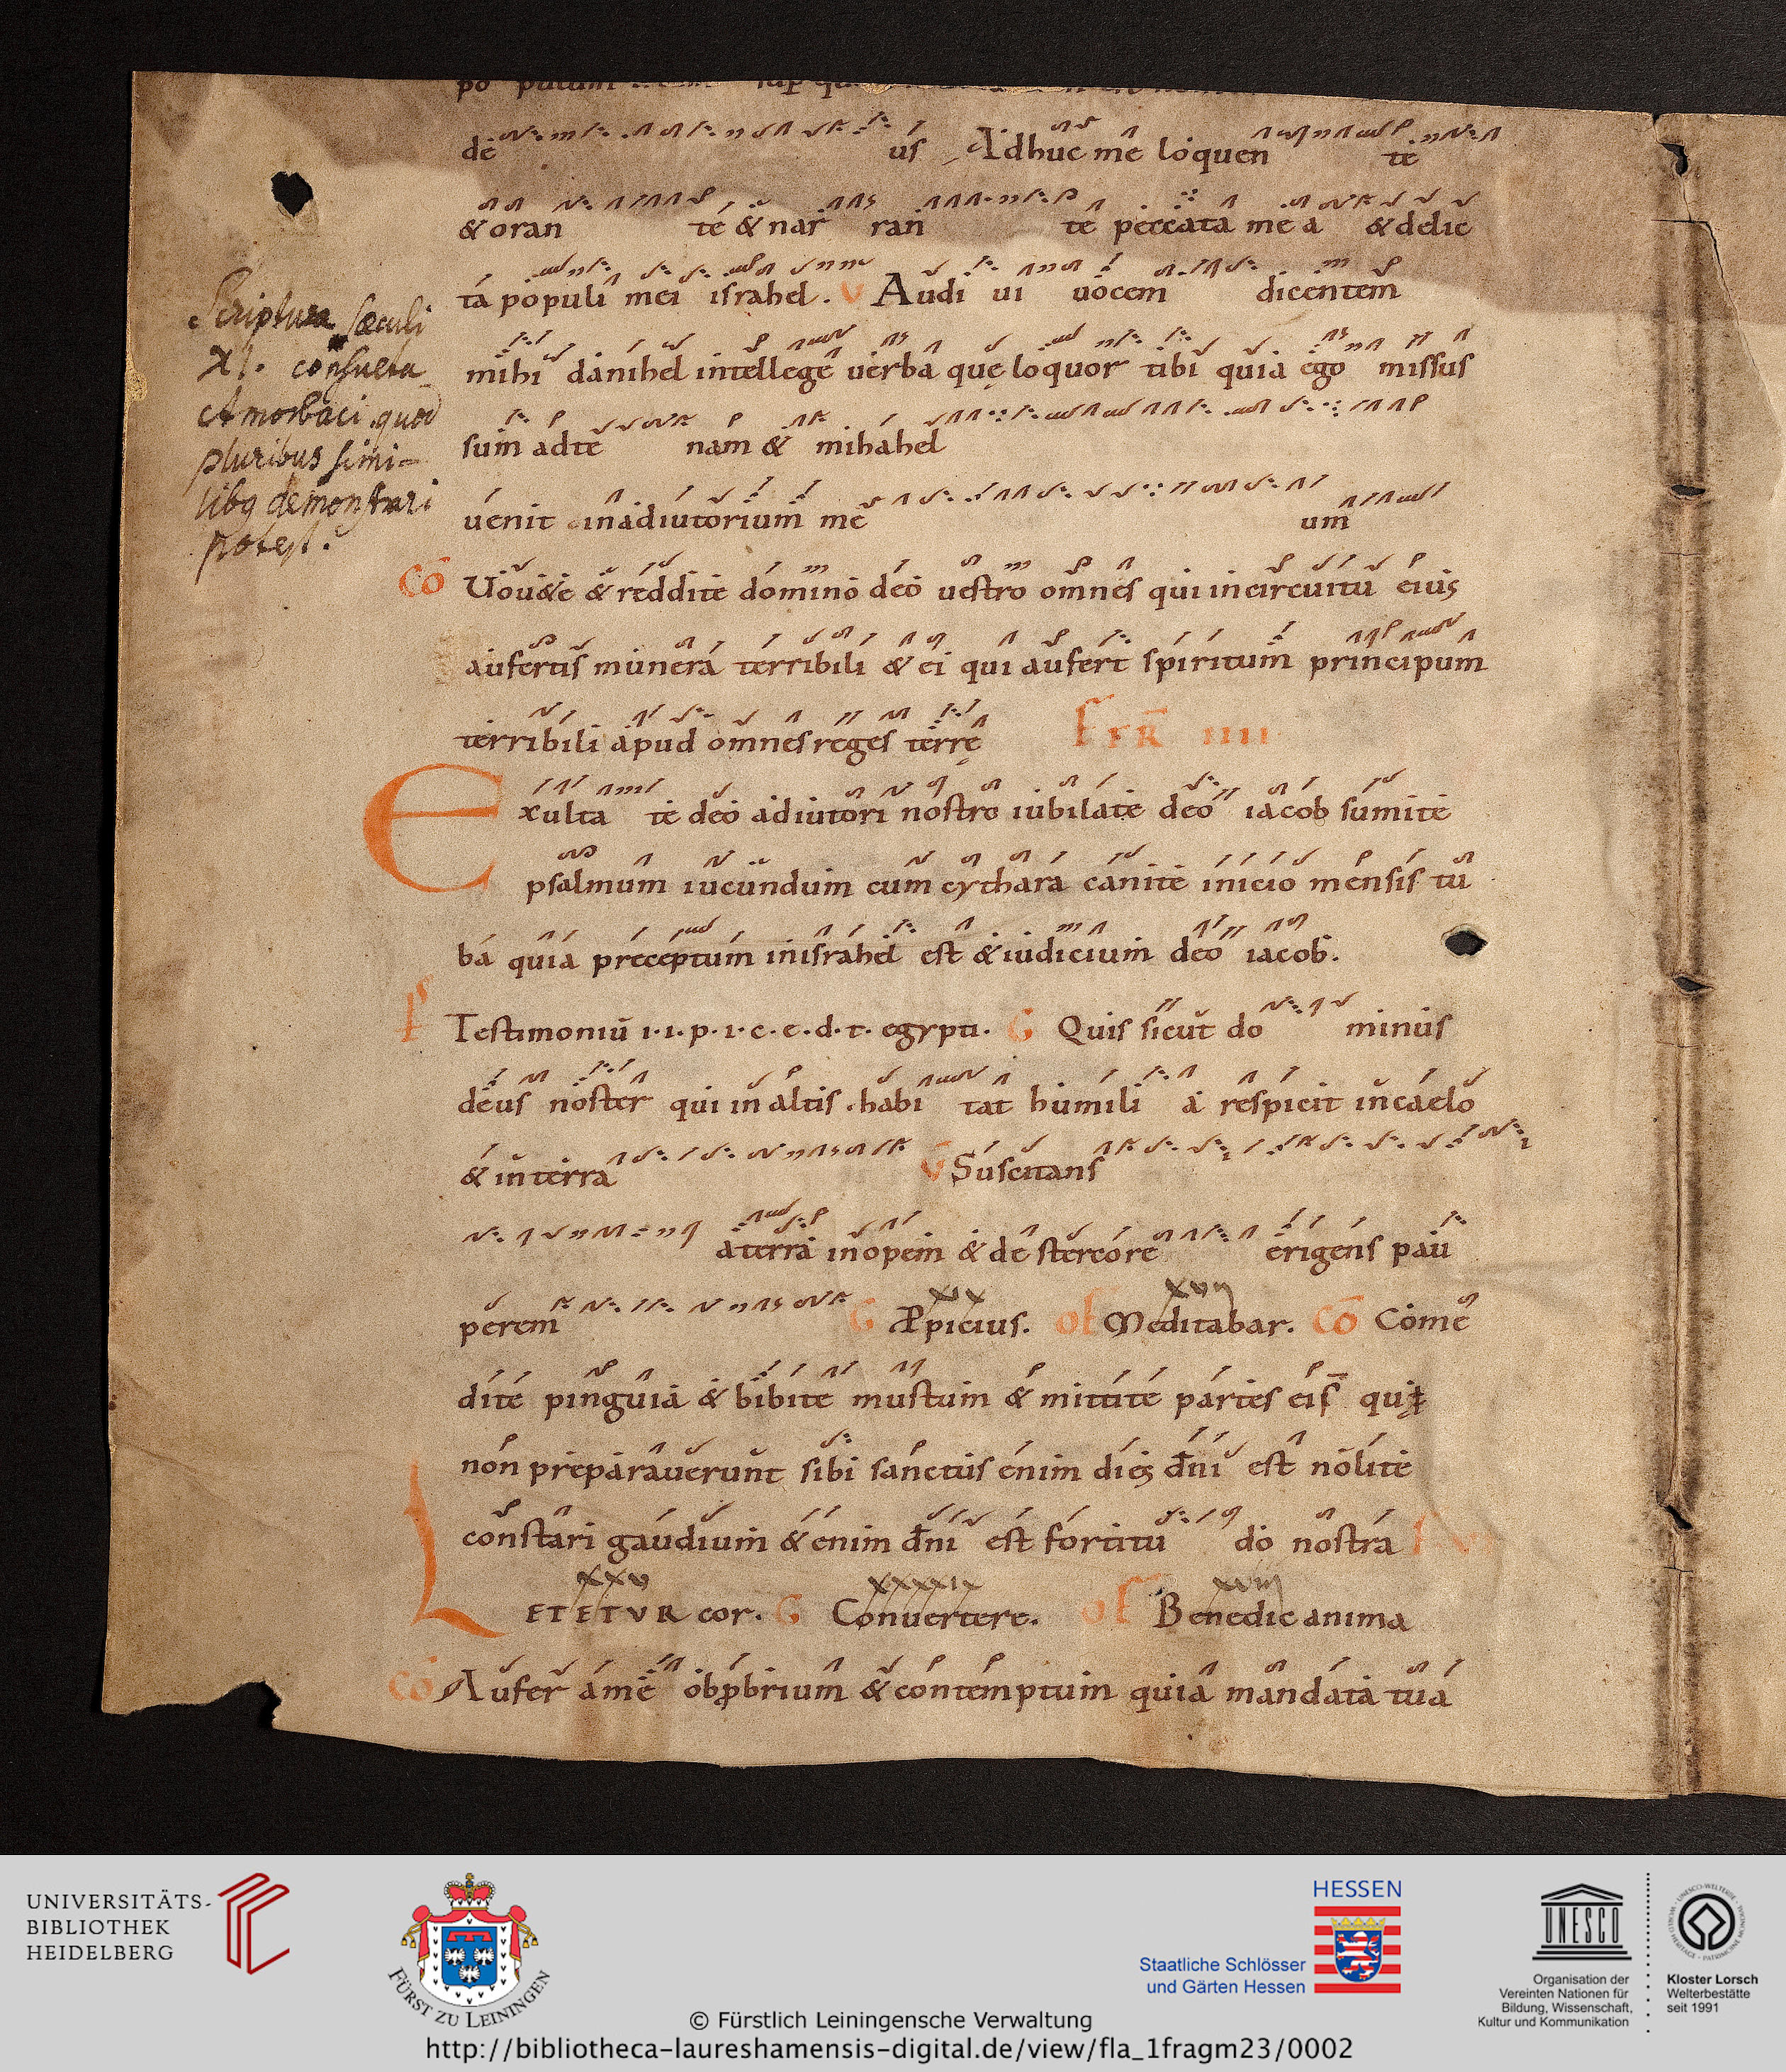 de us Adhuc me loquen te
& oran te & nar ran te peccata me a & delic
ta populi mei israhel. V Audi ui uocem dicentem
mihi danihel intellege uerba quę loquor tibi quia ego missus
sum adte nam & mihahel
uenit inadiutorium me um
CŌ Uou&e & reddite domino deo uestro omnes qui incircuitu eius
aufertis munera terribili & ei qui aufert spiritum principum
terribili apud omnes reges terrę FR IIII
Exulta te deo adiutori nostro iubilate deo iacob sumite
psalmum iucundum cum cythara canite inicio mensis tu
ba quia preceptum inisrahel est & iudicium deo iacob.
P Testimoniū i.i.p.i.c.e.d.t. egypti. G Quis sicut do minus
deus noster qui in altis habi tat humili a respicit incaelo
& interra V Suscitans
aterra inopem & de stercore erigens pau
perem G Æpicius. XIX Of Meditabar. XVII CŌ Come
dite pinguia & bibite mustum & mittite partes eis qui
non preparauerunt sibi sanctus enim dies dn̄i est nolite
constari gaudium & enim dn̄i est fortitu do nostra
XXV XXXXIX XVIII
LETETUR cor. G Conuertere. Of Benedic anima
CŌ Aufer ame obprobrium & contemptum quia mandata tua
Scriptura sæculi
XI. consueta
Amorbaci quod
pluribus simi-
libq demonstrari
potest.
UNIVERSITÄTS-
BIBLIOTHEK
HEIDELBERG
FÜRST ZU LEININGEN
HESSEN
Staatliche Schlösser
und Gärten Hessen
UNESCO
Organisation der
Vereinten Nationen für
Bildung, Wissenschaft,
Kultur und Kommunikation
WORLD HERITAGE • PATRIMOINE MONDIAL
Kloster Lorsch
Welterbestätte
seit 1991
© Fürstlich Leiningensche Verwaltung
http://bibliotheca-laureshamensis-digital.de/view/fla_1fragm23/0002